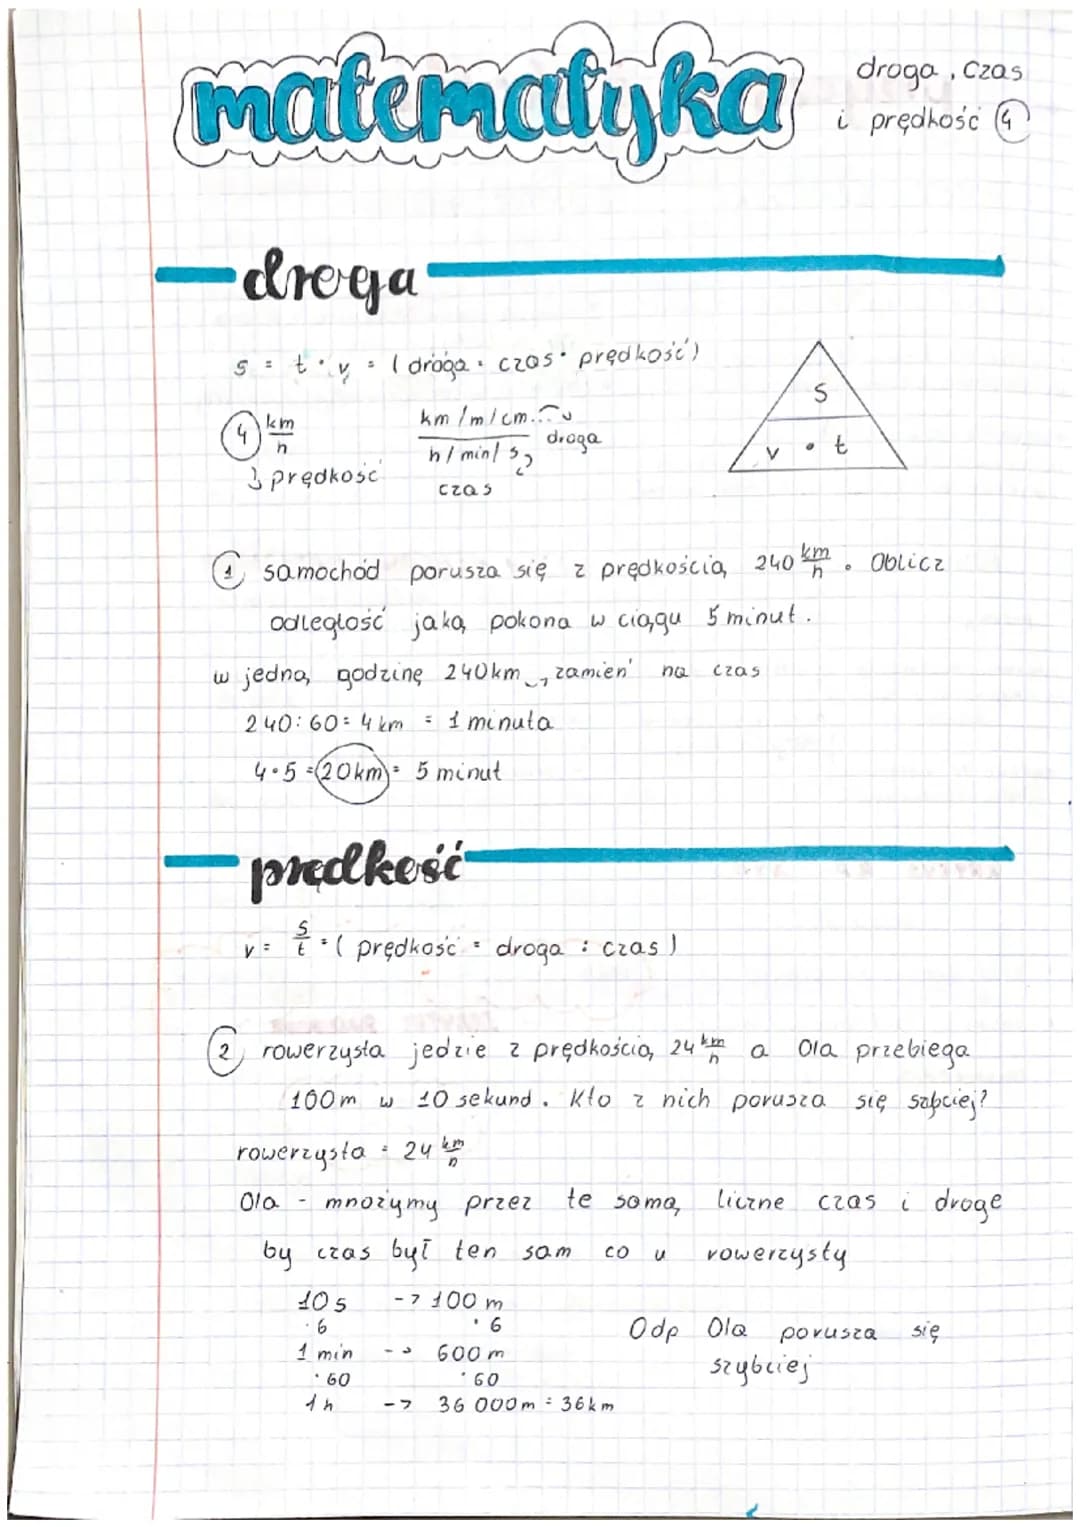 matematyka
droga, czas
i prędkość ④
droga
s = t · v = ( droga = czas · prędkość)
④ km/h
km /m/cm... droga
h/min/s
prędkość
czas
S
v · t
① samochód porusza się z prędkością 240 km/h. Oblicz
odległość jaką pokona w ciągu 5 minut.
w jedną godzinę 240km, zamień na czas
240:60= 4 km = 1 minuta
4·5 = 20km = 5 minut
prędkość
v = s/t = ( prędkość = droga : czas )
② rowerzysta jedzie z prędkością 24 km/h a Ola przebiega
100m w 10 sekund. Kto z nich porusza się szbciej?
rowerzysta = 24 km/h
Ola - mnożymy przez te samą liczne czas i droge
by czas był ten sam co u rowerzysty
10s -> 100 m
·6 ·6
1 min -> 600 m
·60 ·60
1h -> 36 000m = 36km
Odp Ola porusza się
szybciej